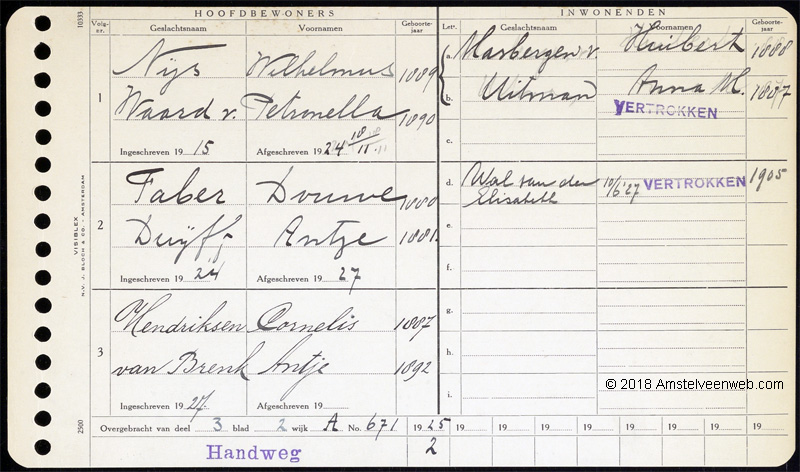 HOOFDBEWONERS
INWONENDEN
Volg-nr. Geslachtsnaam Voornamen Geboorte-jaar
Letr. Geslachtsnaam Voornamen Geboorte-jaar
1
Nijs Wilhelmus 1889
Waard v. Petronella 1890
Ingeschreven 19 15 Afgeschreven 19 24 18/11
a. Marbergen v. Huibert 1888
b. Uitman Anna M. 1887
VERTROKKEN
c.
2
Faber Douwe 1880
Duijff Antje 1881
Ingeschreven 19 24 Afgeschreven 19 27
d. Wal van der Elisabeth 10/6 '27 VERTROKKEN 1905
e.
f.
3
Hendriksen Cornelis 1887
van Brenk Antje 1892
Ingeschreven 19 27. Afgeschreven 19
g.
h.
i.
© 2018 Amstelveenweb.com
Overgebracht van deel 3 blad 2 wijk A No. 671 19 25 19 19 19 19 19 19 19 19
Handweg 2
10333
VISIBLEX
N.V. J. BLOCH & CO. - AMSTERDAM
2500